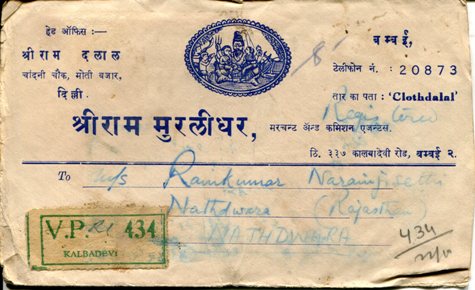 हेड ऑफिस :—
श्रीराम दलाल
चांदनी चौक, मोती बजार,
दिल्ली
बम्बई,
टेलीफोन नं. : 20873
तार का पता : 'Clothdalal'
Registered
श्रीराम मुरलीधर, मरचन्ट अॅन्ड कमिशन एजन्टस.
ठि. ३३७ कालबादेवी रोड, बम्बई २.
To M/s Ramkumar
Nathdwara (Rajasthan)
NATHDWARA
V.P. 434
KALBADEVI
434